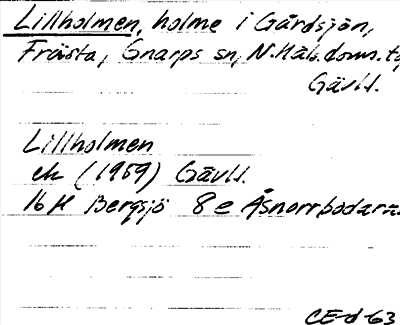 Lillholmen, holme i Gårdsjön,
Frästa, Gnarps sn, N. Häls. doms. tg
Gävl.
Lillholmen
ek (1959) Gävl.
16 H Bergsjö 8 e Åsnorrbodarna
CE-d-63